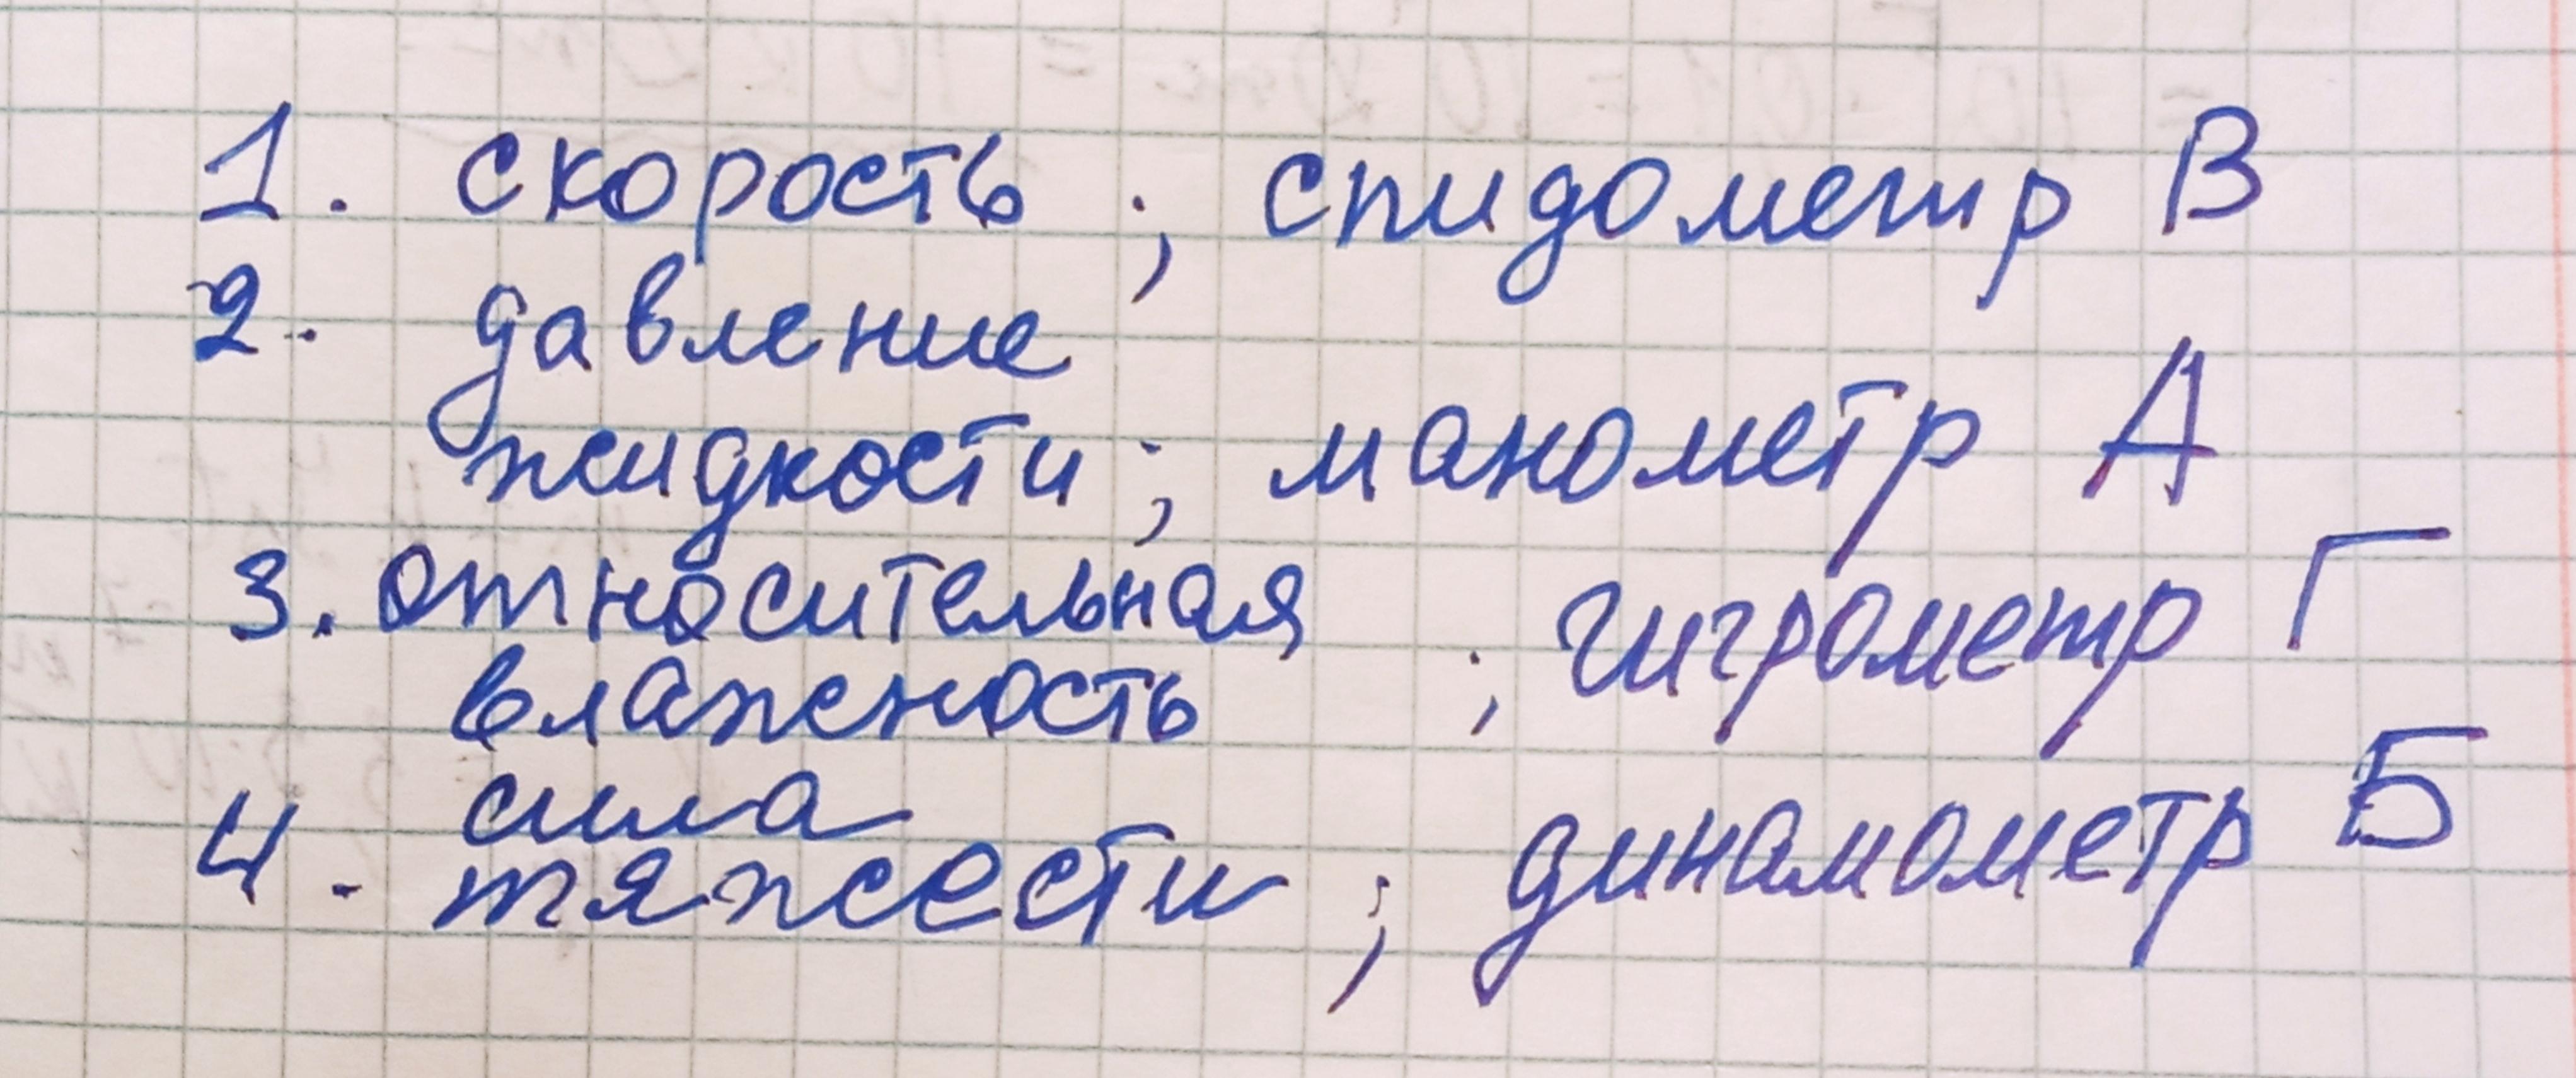 1. скорость ; спидометр В
2. давление
жидкости ; манометр А
3. относительная ; гигрометр Г
влажность
4. сила
тяжести ; динамометр Б